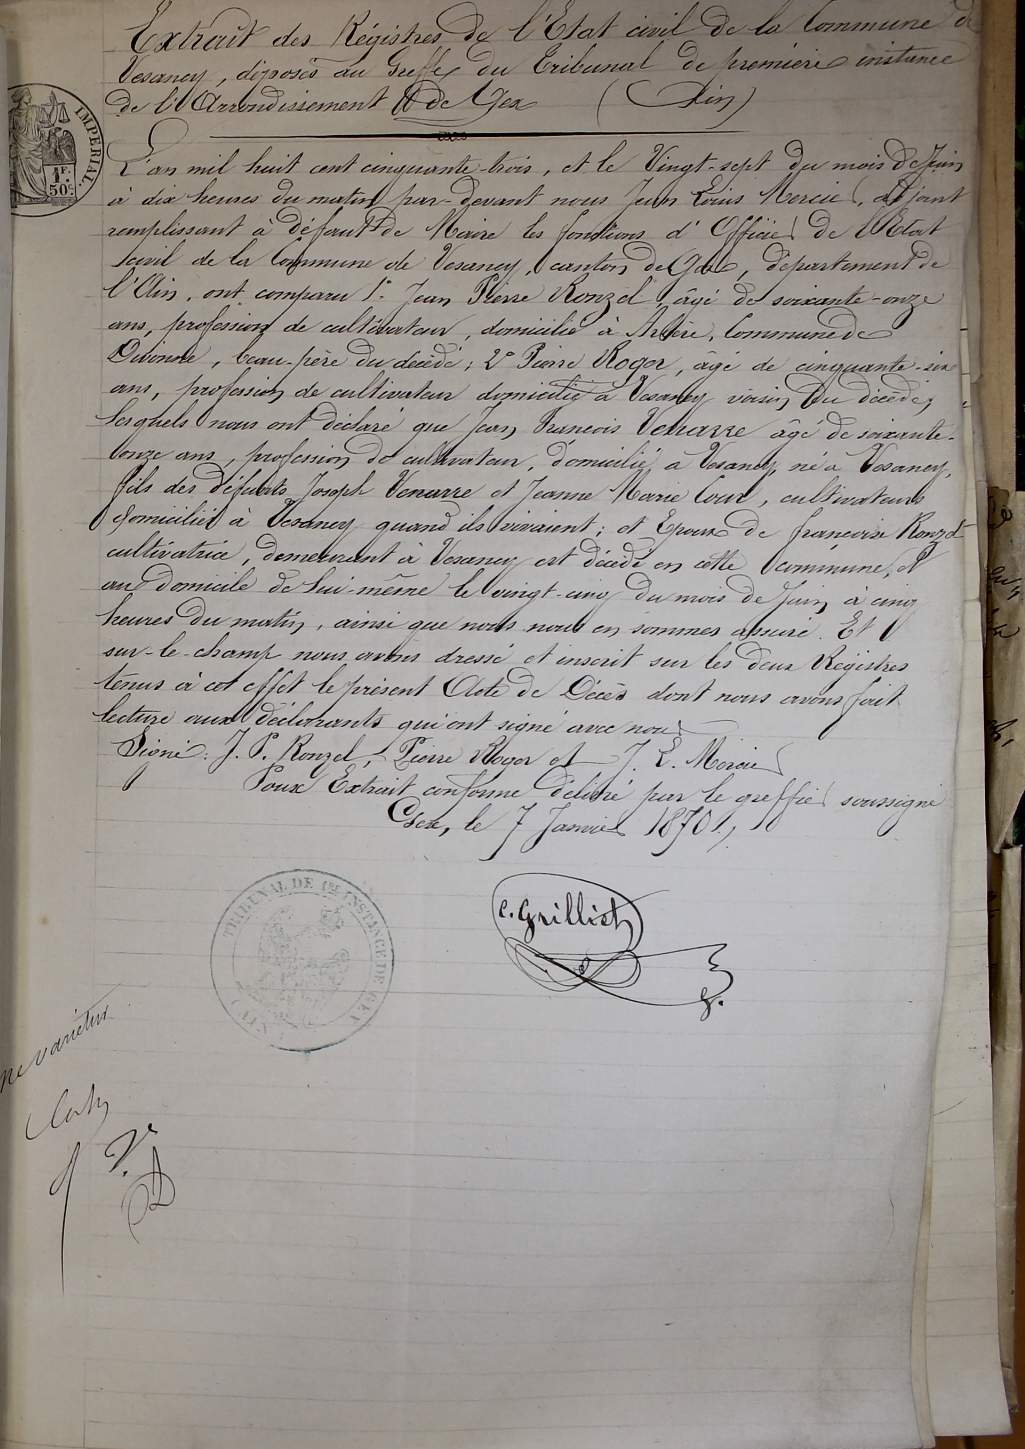 Extrait des Régistres de l'Etat civil de la Commune de
Vesancy, déposés au Greffe du Tribunal de première instance
de l'Arrondissement de Gex (Ain)
IMPERIAL.
1F.
50c.
L'an mil huit cent cinquante-trois, et le Vingt-sept du mois de Juin
à dix heures du matin par-devant nous Jean Louis Mercier, adjoint
remplissant à défaut de Maire les fonctions d'Officier de l'Etat
civil de la Commune de Vesancy, canton de Gex, département de
l'Ain, ont comparu 1º Jean Pierre Ronzel, âgé de soixante-onze
ans, profession de cultivateur, domicilié à Arbère, Commune de
Divonne, beau-père du décédé; 2º Pierre Roger, âgé de cinquante-six
ans, profession de cultivateur domicilié à Vesancy voisin du décédé;
lesquels nous ont déclaré que Jean François Venarre âgé de soixante-
onze ans, profession de cultivateur, domicilié à Vesancy, né à Vesancy,
fils des défunts Joseph Venarre et Jeanne Marie Cour, cultivateurs
domiciliés à Vesancy quand ils vivaient; et Epoux de françoise Ronzel
cultivatrice, demeurant à Vesancy est décédé en cette commune, et
au domicile de lui-même le vingt-cinq du mois de Juin à cinq
heures du matin, ainsi que nous nous en sommes assuré. Et
sur-le-champ nous avons dressé et inscrit sur les deux Régistres
tenus à cet effet le présent Acte de Décès dont nous avons fait
lecture aux déclarants qui ont signé avec nous
Signé: J. P. Ronzel, Pierre Roger et J. L. Mercier
Pour Extrait conforme délivré par le greffier soussigné
Gex, le 7 Janvier 1870.
TRIBUNAL DE 1re INSTANCE DE GEX
C. Grilliet
ne varietur